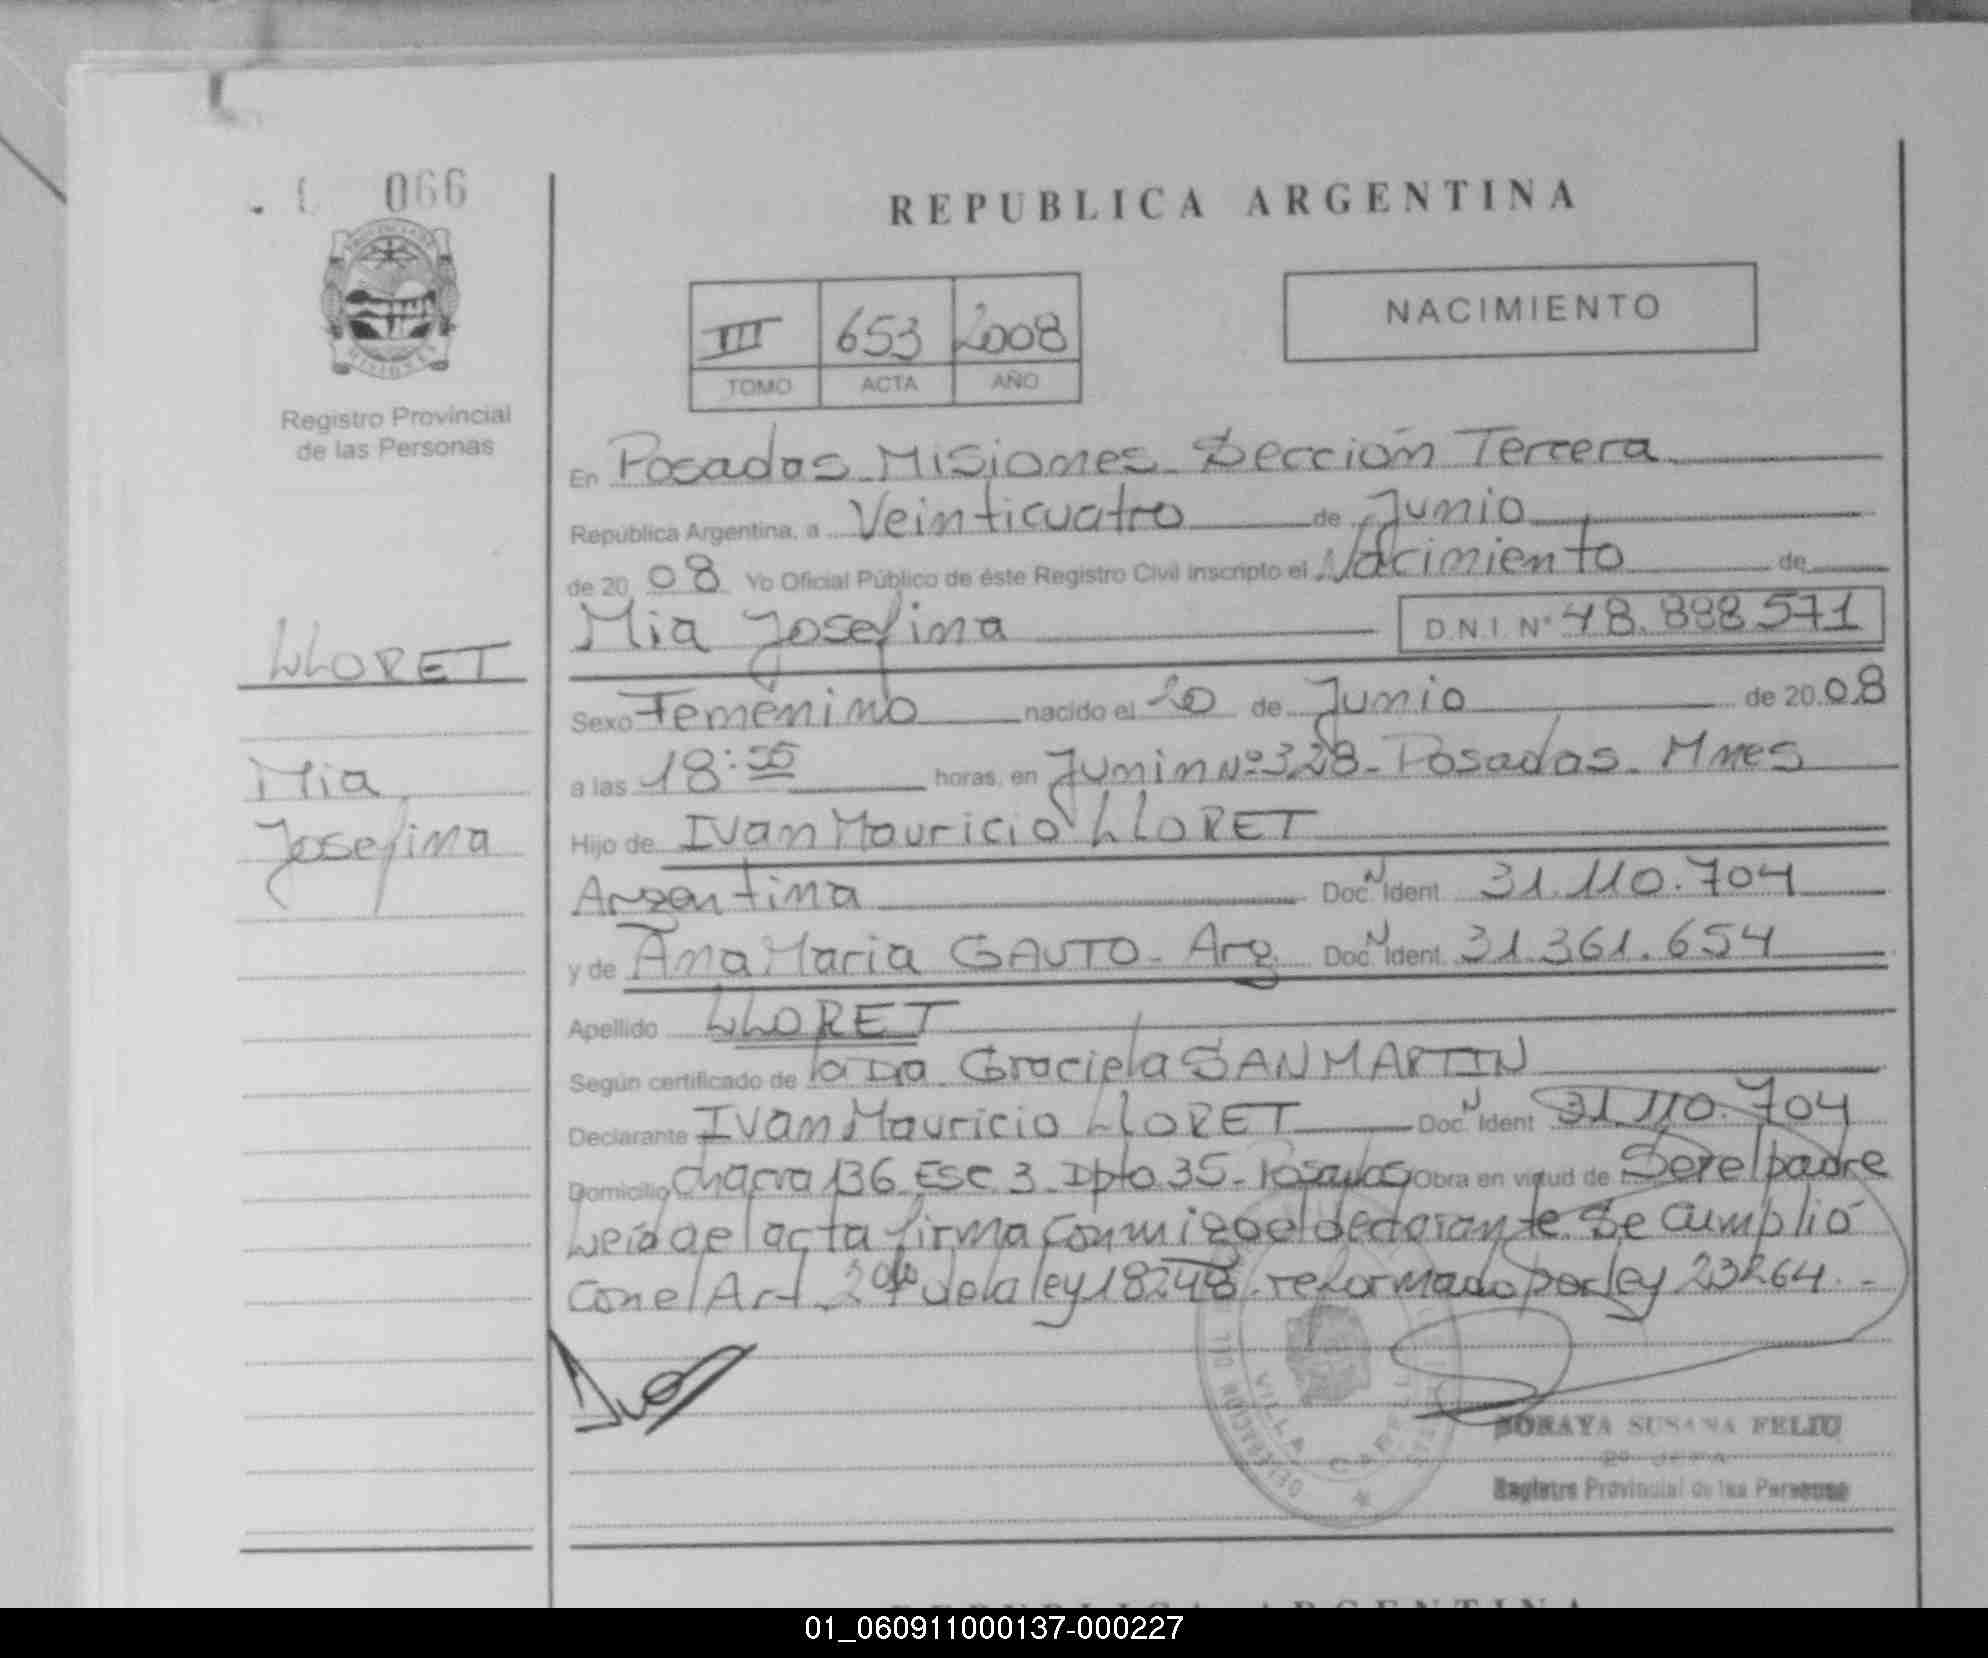 066
REPUBLICA ARGENTINA
NACIMIENTO
III 653 2008
TOMO ACTA AÑO
Registro Provincial
de las Personas
En Posadas Misiones Sección Tercera
República Argentina, a Veinticuatro de Junio
de 20 08 Yo Oficial Público de éste Registro Civil inscripto el Nacimiento de
Mia Josefina D.N.I. N° 48.888.571
LLORET
Mia
Josefina
Sexo Femenino nacido el 20 de Junio de 20 08
a las 18:55 horas, en Junin Nº 328- Posadas- Mnes
Hijo de Ivan Mauricio LLORET
Argentina Doc. N Ident. 31.110.704
y de Ana Maria GAUTO- Arg. Doc. N Ident. 31.361.654
Apellido LLORET
Según certificado de la Dra Graciela SAN MARTIN
Declarante Ivan Mauricio LLORET Doc. N Ident 31.110.704
Domicilio chacra 136 Esc 3 Dpto 35- Posadas Obra en virtud de Ser el padre
Leida el acta firma conmigo el declarante. Se cumplió
con el Art. 2º de la ley 18248 reformado por ley 23264.-
SORAYA SUSANA FELIU
Registro Provincial de las Personas
VILLA CABELLO
REPUBLICA ARGENTINA
01_060911000137-000227